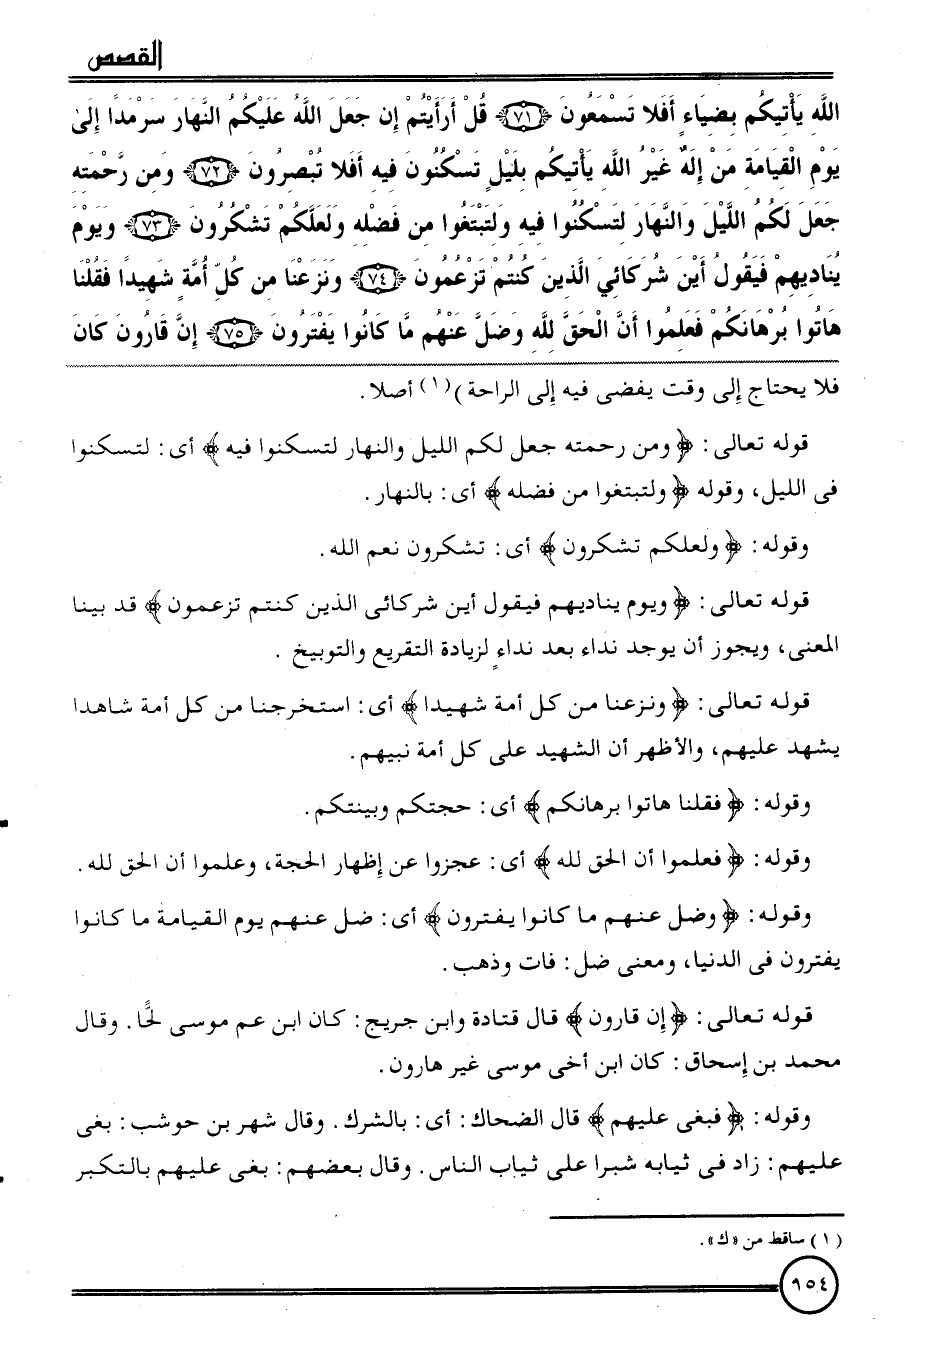 القصص
اللَّه يَأْتِيكُم بِضِيَاءٍ أَفَلا تَسْمَعُونَ ﴿٧١﴾ قُلْ أَرَأَيْتُمْ إِن جَعَلَ اللَّهُ عَلَيْكُمُ النَّهَارَ سَرْمَدًا إِلَىٰ
يَوْمِ الْقِيَامَةِ مَنْ إِلَهٌ غَيْرُ اللَّهِ يَأْتِيكُم بِلَيْلٍ تَسْكُنُونَ فِيهِ أَفَلا تُبْصِرُونَ ﴿٧٢﴾ وَمِن رَّحْمَتِهِ
جَعَلَ لَكُمُ اللَّيْلَ وَالنَّهَارَ لِتَسْكُنُوا فِيهِ وَلِتَبْتَغُوا مِن فَضْلِهِ وَلَعَلَّكُمْ تَشْكُرُونَ ﴿٧٣﴾ وَيَوْمَ
يُنَادِيهِمْ فَيَقُولُ أَيْنَ شُرَكَائِيَ الَّذِينَ كُنتُمْ تَزْعُمُونَ ﴿٧٤﴾ وَنَزَعْنَا مِن كُلِّ أُمَّةٍ شَهِيدًا فَقُلْنَا
هَاتُوا بُرْهَانَكُمْ فَعَلِمُوا أَنَّ الْحَقَّ لِلَّهِ وَضَلَّ عَنْهُم مَّا كَانُوا يَفْتَرُونَ ﴿٧٥﴾ إِنَّ قَارُونَ كَانَ
فلا يحتاج إلى وقت يفضى فيه إلى الراحة)(١) أصلا.
قوله تعالى: ﴿ ومن رحمته جعل لكم الليل والنهار لتسكنوا فيه ﴾ أى: لتسكنوا
فى الليل، وقوله ﴿ ولتبتغوا من فضله ﴾ أى: بالنهار.
وقوله: ﴿ ولعلكم تشكرون ﴾ أى: تشكرون نعم الله.
قوله تعالى: ﴿ ويوم يناديهم فيقول أين شركائى الذين كنتم تزعمون ﴾ قد بينا
المعنى، ويجوز أن يوجد نداء بعد نداءٍ لزيادة التقريع والتوبيخ .
قوله تعالى: ﴿ ونزعنا من كل أمة شهيدا ﴾ أى: استخرجنا من كل أمة شاهدا
يشهد عليهم، والأظهر أن الشهيد على كل أمة نبيهم.
وقوله: ﴿ فقلنا هاتوا برهانكم ﴾ أى: حجتكم وبينتكم.
وقوله: ﴿ فعلموا أن الحق لله ﴾ أى: عجزوا عن إظهار الحجة، وعلموا أن الحق لله.
وقوله: ﴿ وضل عنهم ما كانوا يفترون ﴾ أى: ضل عنهم يوم القيامة ما كانوا
يفترون فى الدنيا، ومعنى ضل: فات وذهب.
قوله تعالى: ﴿ إن قارون ﴾ قال قتادة وابن جريج: كان ابن عم موسى لحًّا. وقال
محمد بن إسحاق: كان ابن أخى موسى غير هارون.
وقوله: ﴿ فبغى عليهم ﴾ قال الضحاك: أى: بالشرك. وقال شهر بن حوشب: بغى
عليهم: زاد فى ثيابه شبرا على ثياب الناس. وقال بعضهم: بغى عليهم بالتكبر
(١) ساقط من «ك».
١٥٤